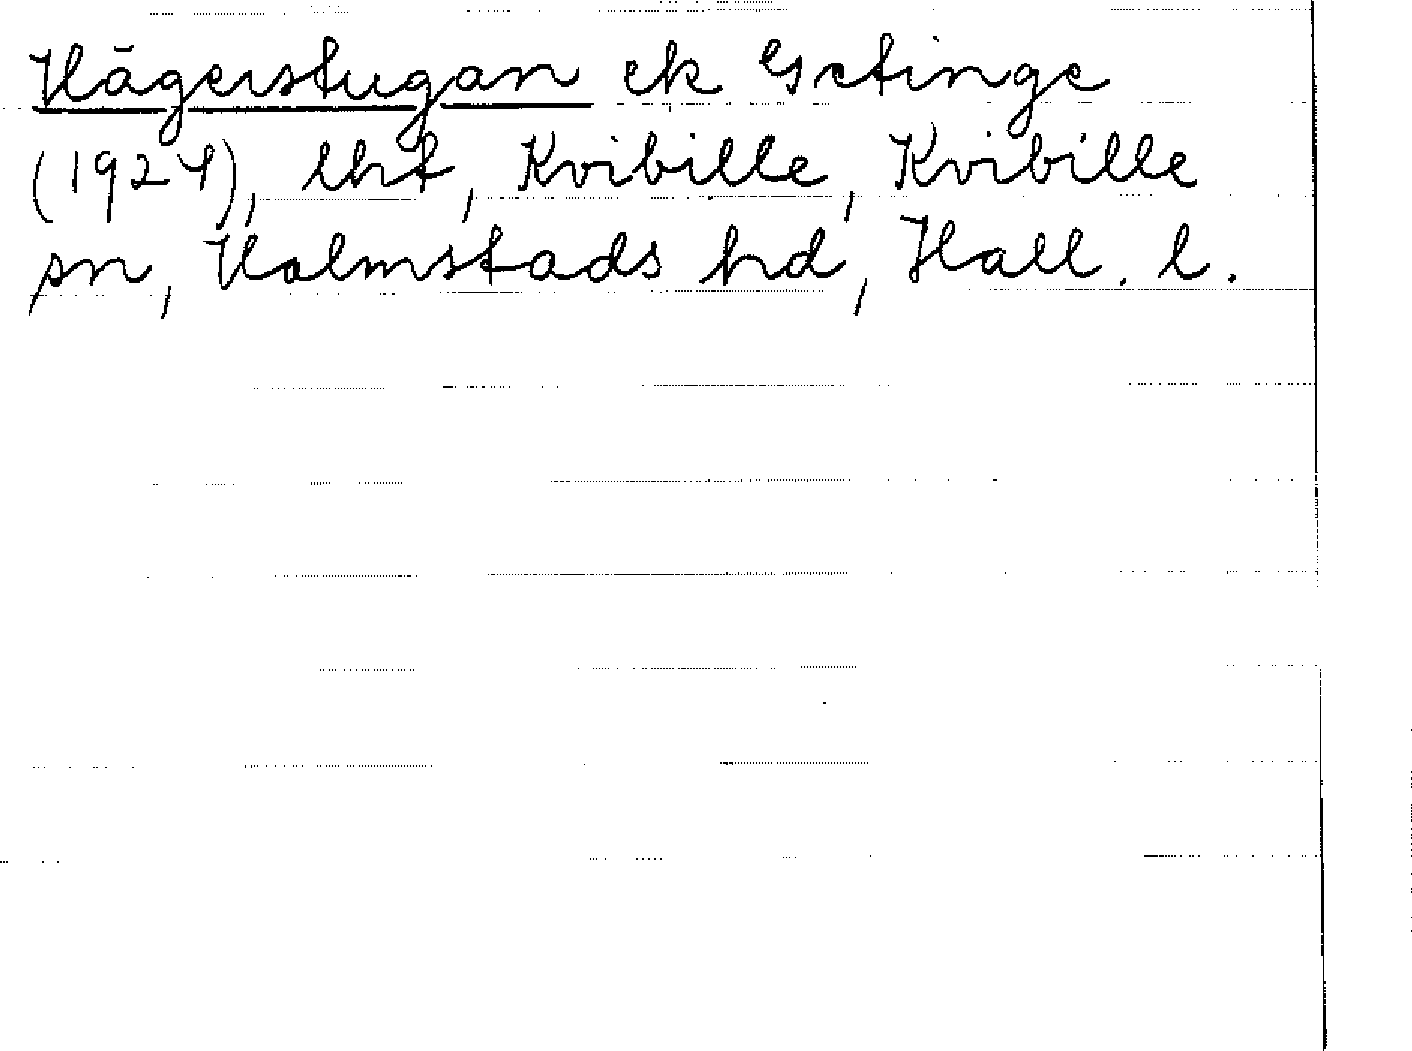 Hägerstugan ek Getinge
(1924), lht, Kvibille, Kvibille
sn, Halmstads hd, Hall. l.